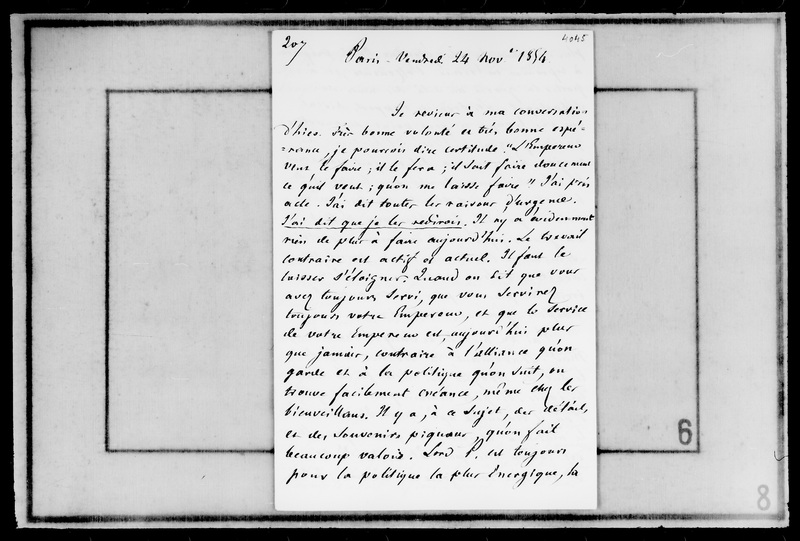 207
4045
Paris - Vendredi 24 Nov.e 1854
Je reviens à ma conversation
d'hier. Très bonne volonté et très bonne espé-
=rance, je pourrois dire certitude. "L'Empereur
veut le faire ; il le fera ; il sait faire doucement
ce qu'il veut ; qu'on me laisse faire" J'ai pris
acte. J'ai dit toutes les raisons d'urgence.
J'ai dit que je les redirois. Il n'y a évidemment
rien de plus à faire aujourd'hui. Le travail
contraire est actif et actuel. Il faut le
laisser s'éloigner. Quand on dit que vous
avez toujours servi, que vous servirez
toujours votre Empereur, et que le service
de votre Empereur est, aujourd'hui plus
que jamais, contraire à l'alliance qu'on
garde et à la politique qu'on suit, on
trouve facilement créance, même chez les
bienveillans. Il y a, à ce sujet, des détails,
et des souvenirs piquans, qu'on fait
beaucoup valoir. Lord P. est toujours
pour la politique la plus énergique, la
6
8